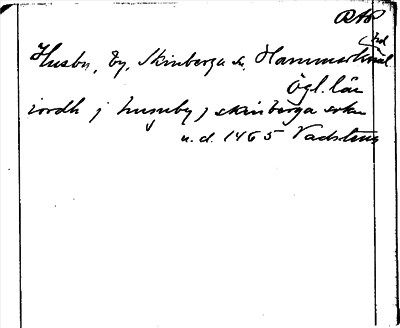 RAP
Husby, by, Skänberga sn, Hammarkinds hd
Ögl. län
iordh j husuby j skänberga sokn
u. d. 1465 Vadstena